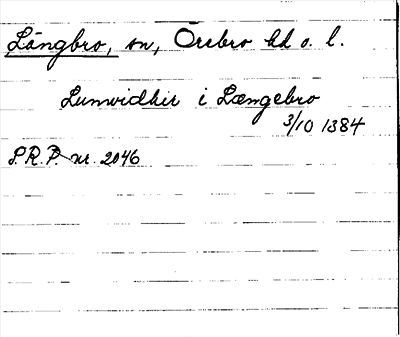 Långbro, sn, Örebro hd o. l.
Lunwidhir i Længebro
3/10 1384
S.R.P. nr. 2046